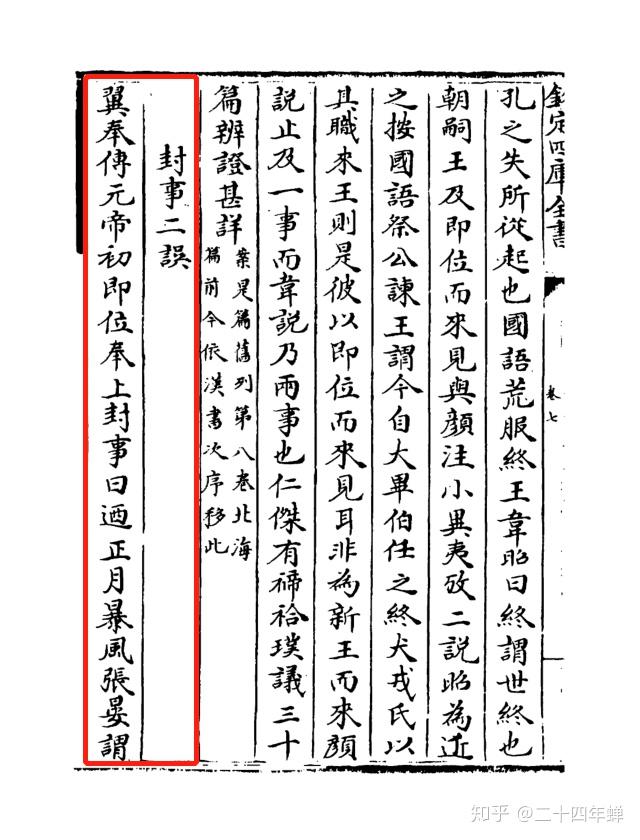 欽定四庫全書
卷七
孔之失所從起也國語荒服終王韋昭曰終謂世終也
朝嗣王及即位而來見與顔注小異夷攷二說昭為近
之按國語祭公諫王謂今自大畢伯仕之終犬戎氏以
其職來王則是彼以即位而來見耳非為新王而來顔
說止及一事而韋說乃兩事也仁傑有禘祫璞議三十
篇辨證甚詳
案是篇舊列第八卷北海
篇前今依漢書次序移此
封事二誤
翼奉傳元帝初即位奉上封事曰迺正月暴風張晏謂
知乎 @二十四年蝉